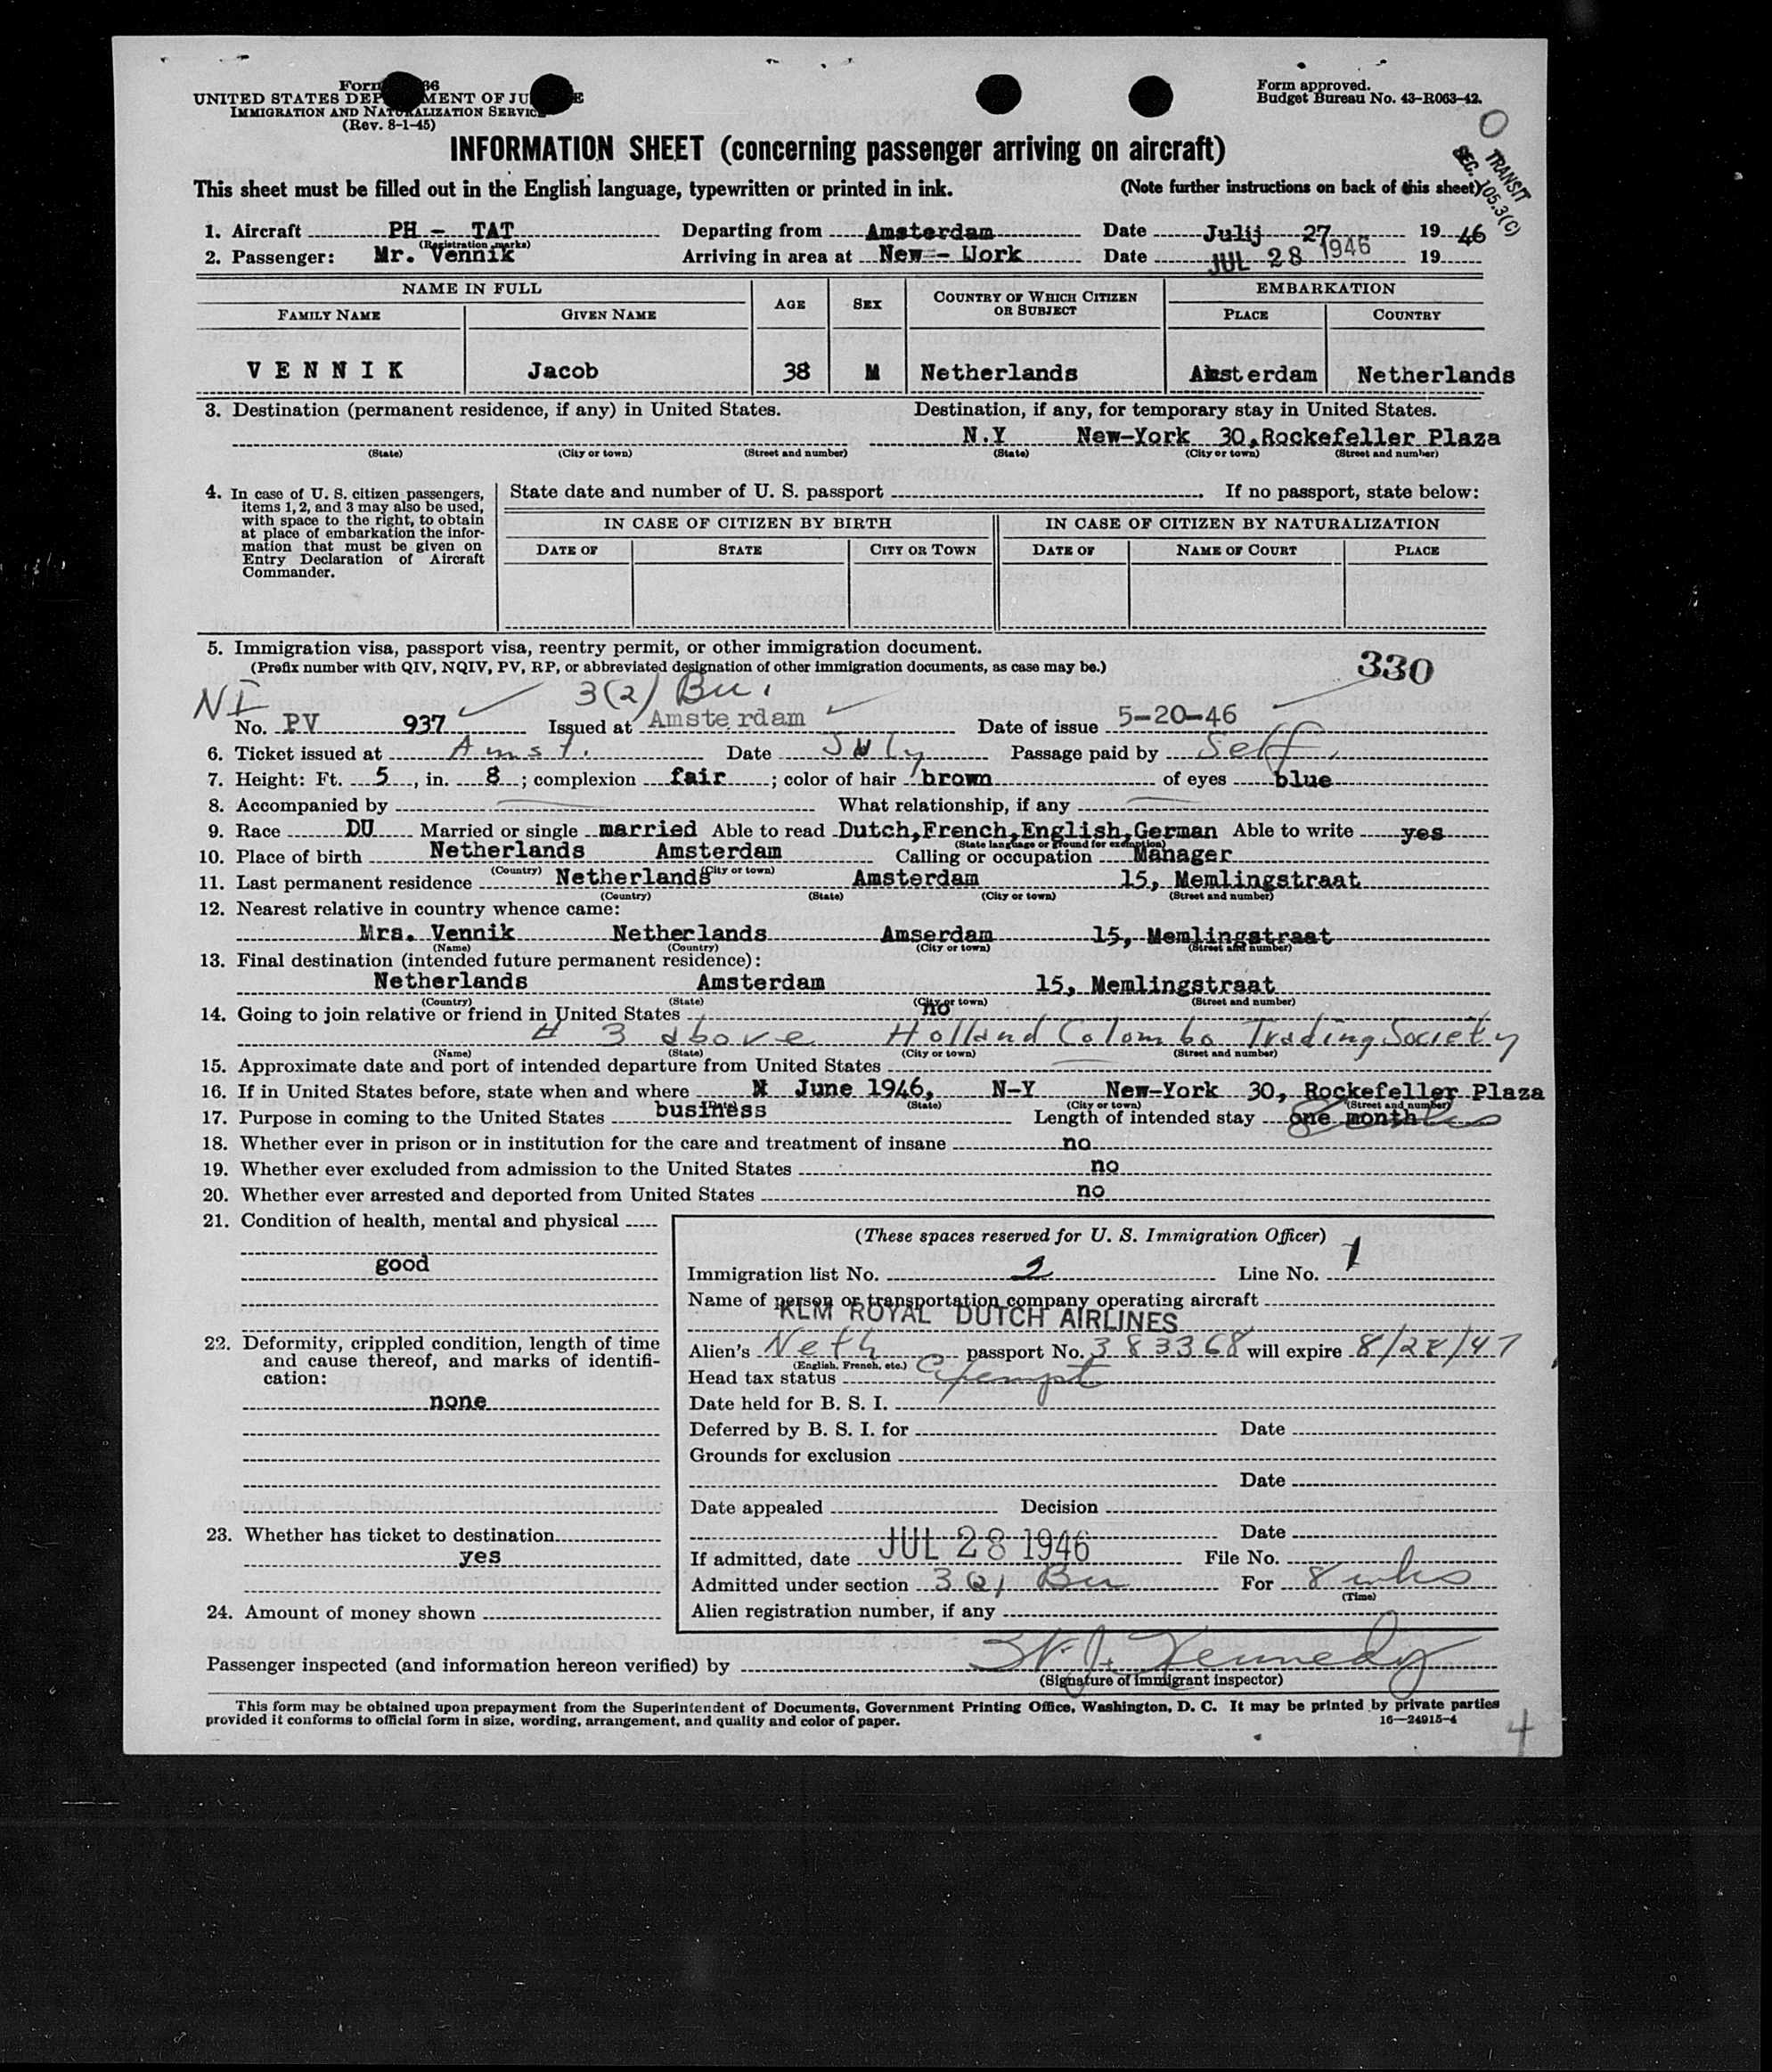 Form 66
UNITED STATES DEP MENT OF JU E
IMMIGRATION AND NATURALIZATION SERVIC
(Rev. 8-1-45)
Form approved.
Budget Bureau No. 43-R063-42.
O
TRANSIT
SEC. 105.3(C)
INFORMATION SHEET (concerning passenger arriving on aircraft)
This sheet must be filled out in the English language, typewritten or printed in ink. (Note further instructions on back of this sheet)
1. Aircraft PH - TAT Departing from Amsterdam Date Julij 27 1946
(Registration marks)
2. Passenger: Mr. Vennik Arriving in area at New - Uork Date JUL 28 1946 19
NAME IN FULL AGE SEX COUNTRY OF WHICH CITIZEN OR SUBJECT EMBARKATION
FAMILY NAME GIVEN NAME PLACE COUNTRY
VENNIK Jacob 38 M Netherlands Amsterdam Netherlands
3. Destination (permanent residence, if any) in United States. Destination, if any, for temporary stay in United States.
N.Y New-York 30,Rockefeller Plaza
(State) (City or town) (Street and number) (State) (City or town) (Street and number)
4. In case of U. S. citizen passengers, items 1, 2, and 3 may also be used, with space to the right, to obtain at place of embarkation the information that must be given on Entry Declaration of Aircraft Commander.
State date and number of U. S. passport If no passport, state below:
IN CASE OF CITIZEN BY BIRTH IN CASE OF CITIZEN BY NATURALIZATION
DATE OF STATE CITY OR TOWN DATE OF NAME OF COURT PLACE
5. Immigration visa, passport visa, reentry permit, or other immigration document.
(Prefix number with QIV, NQIV, PV, RP, or abbreviated designation of other immigration documents, as case may be.) 330
NI 3(2) Bu.
No. PV 937 Issued at Amsterdam Date of issue 5-20-46
6. Ticket issued at Amst. Date July Passage paid by Self
7. Height: Ft. 5, in. 8; complexion fair; color of hair brown of eyes blue
8. Accompanied by What relationship, if any
9. Race DU Married or single married Able to read Dutch,French,English,German Able to write yes
(State language or ground for exemption)
10. Place of birth Netherlands Amsterdam Calling or occupation Manager
(Country) (City or town)
11. Last permanent residence Netherlands Amsterdam 15, Memlingstraat
(Country) (State) (City or town) (Street and number)
12. Nearest relative in country whence came:
Mrs. Vennik Netherlands Amserdam 15, Memlingstraat
(Name) (Country) (City or town) (Street and number)
13. Final destination (intended future permanent residence):
Netherlands Amsterdam 15, Memlingstraat
(Country) (State) (City or town) (Street and number)
14. Going to join relative or friend in United States no
# 3 above Holland Colombo Trading Society
(Name) (State) (City or town) (Street and number)
15. Approximate date and port of intended departure from United States
16. If in United States before, state when and where June 1946, N-Y New-York 30, Rockefeller Plaza
(Date) (State) (City or town) (Street and number)
17. Purpose in coming to the United States business Length of intended stay one month 8 wks
18. Whether ever in prison or in institution for the care and treatment of insane no
19. Whether ever excluded from admission to the United States no
20. Whether ever arrested and deported from United States no
21. Condition of health, mental and physical
good
22. Deformity, crippled condition, length of time and cause thereof, and marks of identification:
none
23. Whether has ticket to destination
yes
24. Amount of money shown
(These spaces reserved for U. S. Immigration Officer)
Immigration list No. 2 Line No. 1
Name of person or transportation company operating aircraft
KLM ROYAL DUTCH AIRLINES
Alien's Neth passport No. 383368 will expire 8/28/47
(English, French, etc.)
Head tax status Exempt
Date held for B. S. I.
Deferred by B. S. I. for Date
Grounds for exclusion
Date
Date appealed Decision
Date
If admitted, date JUL 28 1946 File No.
Admitted under section 3(2) Bu For 8 wks
(Time)
Alien registration number, if any
Passenger inspected (and information hereon verified) by Kennedy
(Signature of immigrant inspector)
This form may be obtained upon prepayment from the Superintendent of Documents, Government Printing Office, Washington, D. C. It may be printed by private parties
provided it conforms to official form in size, wording, arrangement, and quality and color of paper. 16—24915-4
4